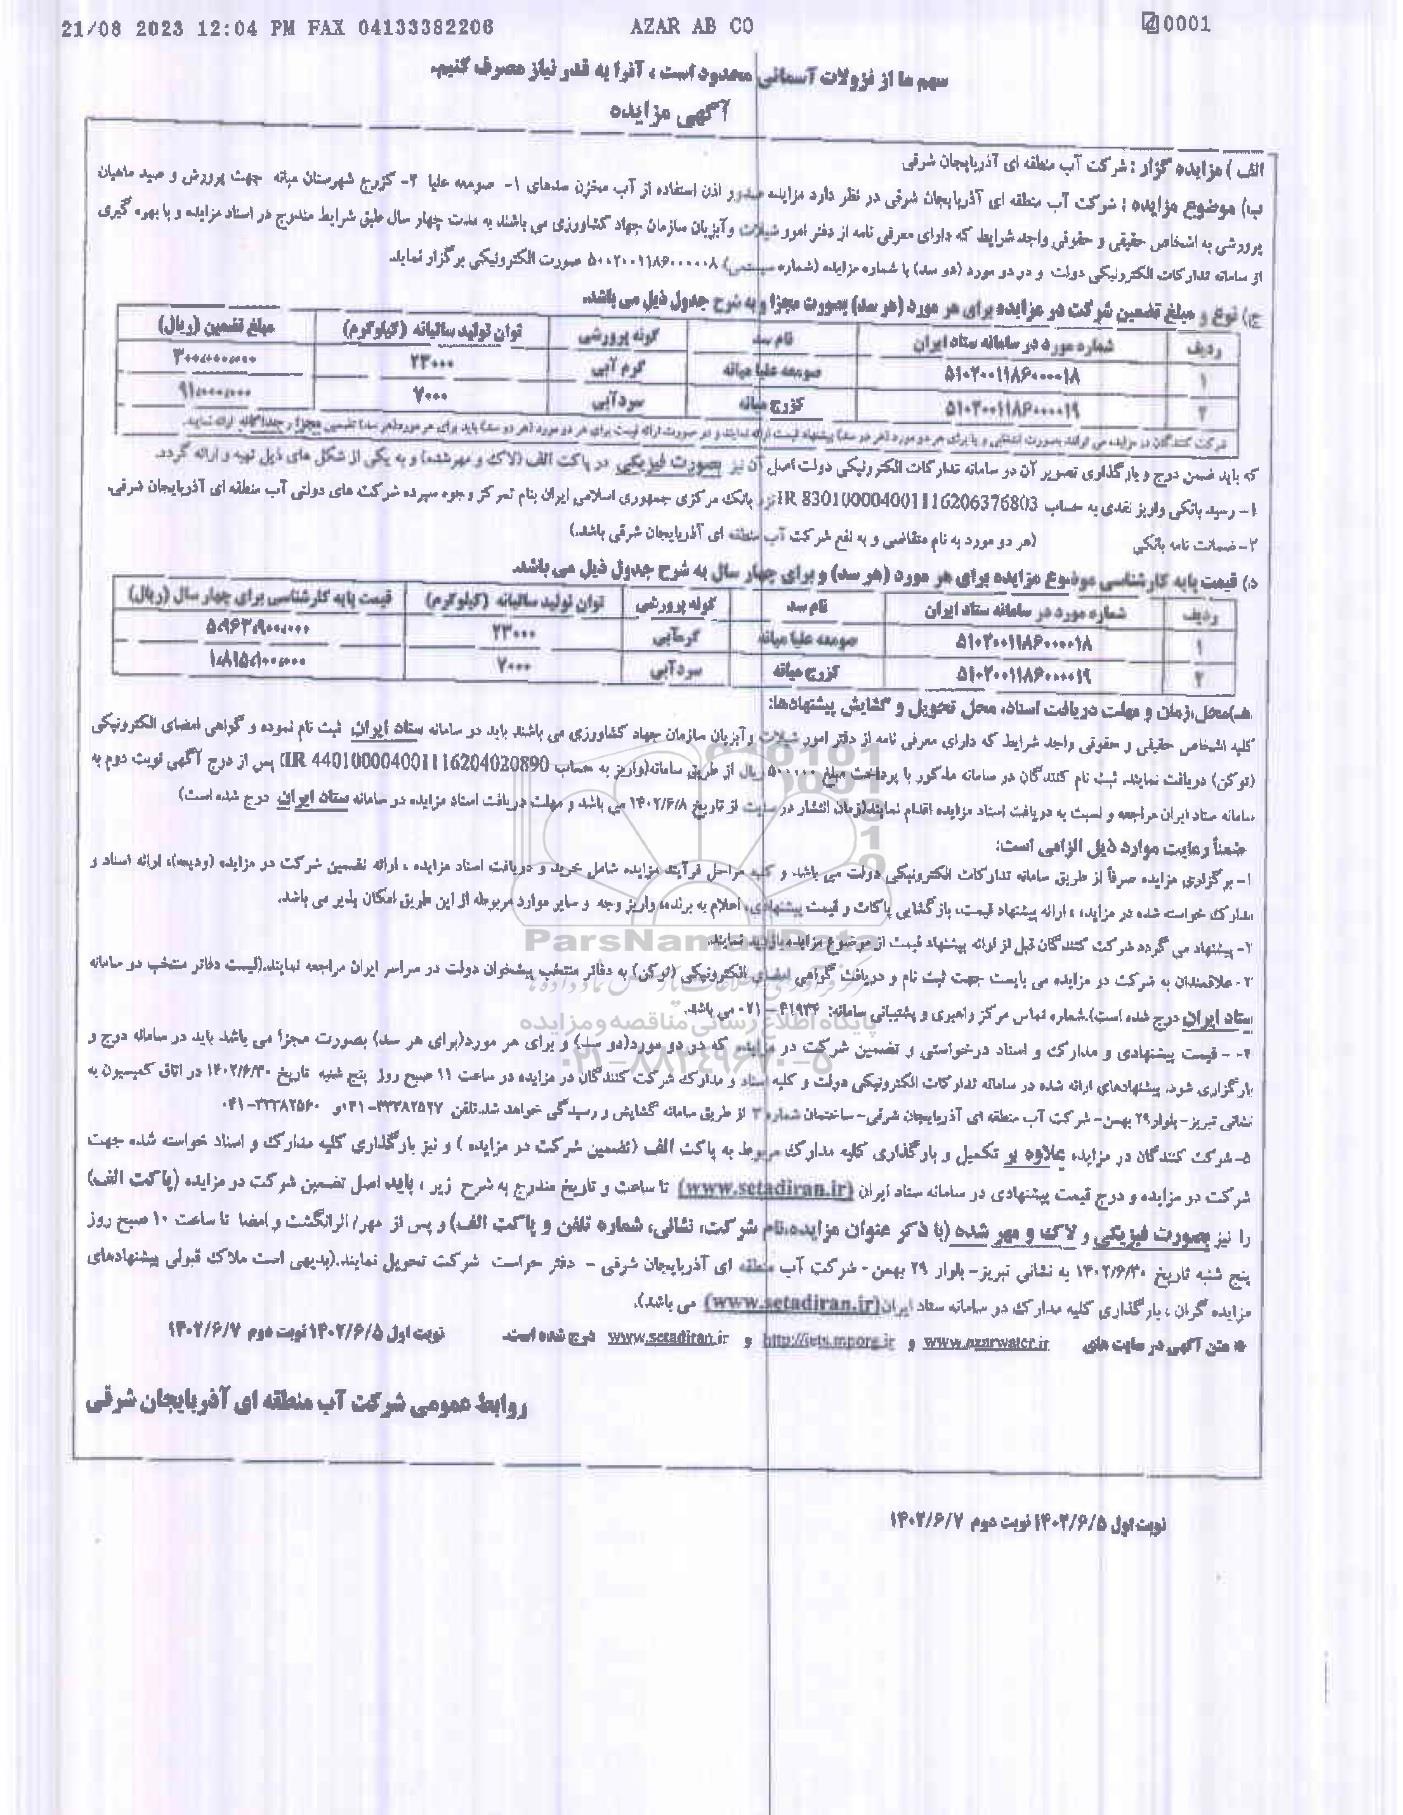 21/08 2023 12:04 PM FAX 04133382206 AZAR AB CO 0001
سهم ما از نزولات آسمانی محدود است ، آنرا به قدر نیاز مصرف کنیم.
آگهی مزایده
الف ) مزایده گزار : شرکت آب منطقه ای آذربایجان شرقی
ب) موضوع مزایده : شرکت آب منطقه ای آذربایجان شرقی در نظر دارد مزایده صدور اذن استفاده از آب مخزن سدهای ۱- صومعه علیا ۲- کزرج شهرستان میانه جهت پرورش و صید ماهیان
پرورشی به اشخاص حقیقی و حقوقی واجد شرایط که دارای معرفی نامه از دفتر امور شیلات وآبزیان سازمان جهاد کشاورزی می باشند به مدت چهار سال طبق شرایط مندرج در اسناد مزایده و با بهره گیری
از سامانه تدارکات الکترونیکی دولت و در دو مورد (دو سد) با شماره مزایده (شماره سیستمی) ۵۰۰۲۰۰۱۱۸۶۰۰۰۰۰۸ صورت الکترونیکی برگزار نماید.
ج) نوع و مبلغ تضمین شرکت در مزایده برای هر مورد (هر سد) بصورت مجزا و به شرح جدول ذیل می باشد.
ردیف شماره مورد در سامانه ستاد ایران نام سد گونه پرورشی توان تولید سالیانه (کیلوگرم) مبلغ تضمین (ریال)
۱ ۵۱۰۲۰۰۱۱۸۶۰۰۰۰۱۸ صومعه علیا میانه گرم آبی ۲۳۰۰۰ ۳۰۰،۰۰۰،۰۰۰
۲ ۵۱۰۲۰۰۱۱۸۶۰۰۰۰۱۹ کزرج میانه سردآبی ۷۰۰۰ ۹۱،۰۰۰،۰۰۰
شرکت کنندگان در مزایده می توانند بصورت انتخابی و یا برای هر دو مورد (هر دو سد) پیشنهاد قیمت ارائه نمایند و در صورت ارائه قیمت برای هر دو مورد (هر دو سد) باید برای هر مورد(هر سد) تضمین مجزا و جداگانه ارائه نمایند.
که باید ضمن درج و بارگذاری تصویر آن در سامانه تدارکات الکترونیکی دولت اصل آن نیز بصورت فیزیکی در پاکت الف (لاک و مهرشده) و به یکی از شکل های ذیل تهیه و ارائه گردد.
۱- رسید بانکی واریز نقدی به حساب IR 830100004001116206376803 نزد بانک مرکزی جمهوری اسلامی ایران بنام تمرکز وجوه سپرده شرکت های دولتی آب منطقه ای آذربایجان شرقی.
۲- ضمانت نامه بانکی (هر دو مورد به نام متقاضی و به نفع شرکت آب منطقه ای آذربایجان شرقی باشد.)
د) قیمت پایه کارشناسی موضوع مزایده برای هر مورد (هر سد) و برای چهار سال به شرح جدول ذیل می باشد.
ردیف شماره مورد در سامانه ستاد ایران نام سد گونه پرورشی توان تولید سالیانه (کیلوگرم) قیمت پایه کارشناسی برای چهار سال (ریال)
۱ ۵۱۰۲۰۰۱۱۸۶۰۰۰۰۱۸ صومعه علیا میانه گرمآبی ۲۳۰۰۰ ۵،۹۶۳،۹۰۰،۰۰۰
۲ ۵۱۰۲۰۰۱۱۸۶۰۰۰۰۱۹ کزرج میانه سردآبی ۷۰۰۰ ۱،۸۱۵،۱۰۰،۰۰۰
ه)محل،زمان و مهلت دریافت اسناد، محل تحویل و گشایش پیشنهادها:
کلیه اشخاص حقیقی و حقوقی واجد شرایط که دارای معرفی نامه از دفتر امور شیلات وآبزیان سازمان جهاد کشاورزی می باشند باید در سامانه ستاد ایران ثبت نام نموده و گواهی امضای الکترونیکی
(توکن) دریافت نمایند. ثبت نام کنندگان در سامانه مذکور با پرداخت مبلغ ۵۰۰،۰۰۰ ریال از طریق سامانه(واریز به حساب IR 440100004001116204020890) پس از درج آگهی نوبت دوم به
سامانه ستاد ایران مراجعه و نسبت به دریافت اسناد مزایده اقدام نمایند(زمان انتشار در سایت از تاریخ ۱۴۰۲/۶/۸ می باشد و مهلت دریافت اسناد مزایده در سامانه ستاد ایران درج شده است)
ضمناً رعایت موارد ذیل الزامی است:
۱- برگزاری مزایده صرفاً از طریق سامانه تدارکات الکترونیکی دولت می باشد و کلیه مراحل فرآیند مزایده شامل خرید و دریافت اسناد مزایده ، ارائه تضمین شرکت در مزایده (ودیعه)، ارائه اسناد و
مدارک خواسته شده در مزایده ، ارائه پیشنهاد قیمت، بازگشایی پاکات و قیمت پیشنهادی، اعلام به برنده، واریز وجه و سایر موارد مربوطه از این طریق امکان پذیر می باشد.
۲- پیشنهاد می گردد شرکت کنندگان قبل از ارائه پیشنهاد قیمت از موضوع مزایده بازدید نمایند.
ParsNamadData
۳- علاقمندان به شرکت در مزایده می بایست جهت ثبت نام و دریافت گواهی امضای الکترونیکی (توکن) به دفاتر منتخب پیشخوان دولت در سراسر ایران مراجعه نمایند.(لیست دفاتر منتخب در سامانه
ستاد ایران درج شده است).شماره تماس مرکز راهبری و پشتیبانی سامانه: ۴۱۹۳۴-۰۲۱ می باشد.
پایگاه اطلاع رسانی مناقصه و مزایده
۴- - قیمت پیشنهادی و مدارک و اسناد درخواستی و تضمین شرکت در مزایده که در دو مورد(دو سد) و برای هر مورد(برای هر سد) بصورت مجزا می باشد باید در سامانه درج و
۰۲۱-۸۸۳۴۹۶۷۰-۵
بارگزاری شود. پیشنهادهای ارائه شده در سامانه تدارکات الکترونیکی دولت و کلیه اسناد و مدارک شرکت کنندگان در مزایده در ساعت ۱۱ صبح روز پنج شنبه تاریخ ۱۴۰۲/۶/۳۰ در اتاق کمیسیون به
نشانی تبریز- بلوار۲۹ بهمن- شرکت آب منطقه ای آذربایجان شرقی- ساختمان شماره ۳ از طریق سامانه گشایش و رسیدگی خواهد شد.تلفن ۳۳۳۸۲۵۲۷-۰۴۱و ۳۳۳۸۲۵۶۰-۰۴۱
۵-شرکت کنندگان در مزایده علاوه بر تکمیل و بارگذاری کلیه مدارک مربوط به پاکت الف (تضمین شرکت در مزایده ) و نیز بارگذاری کلیه مدارک و اسناد خواسته شده جهت
شرکت در مزایده و درج قیمت پیشنهادی در سامانه ستاد ایران (www.setadiran.ir) تا ساعت و تاریخ مندرج به شرح زیر ، باید اصل تضمین شرکت در مزایده (پاکت الف)
را نیز بصورت فیزیکی و لاک و مهر شده (با ذکر عنوان مزایده،نام شرکت، نشانی، شماره تلفن و پاکت الف) و پس از مهر/ اثرانگشت و امضا تا ساعت ۱۰ صبح روز
پنج شنبه تاریخ ۱۴۰۲/۶/۳۰ به نشانی تبریز- بلوار ۲۹ بهمن- شرکت آب منطقه ای آذربایجان شرقی - دفتر حراست شرکت تحویل نمایند.(بدیهی است ملاک قبولی پیشنهادهای
مزایده گران ، بارگذاری کلیه مدارک در سامانه ستاد ایران(www.setadiran.ir) می باشد).
* متن آگهی در سایت های www.azarwater.ir و http://iets.mporg.ir و www.setadiran.ir درج شده است. نوبت اول ۱۴۰۲/۶/۵ نوبت دوم ۱۴۰۲/۶/۷
روابط عمومی شرکت آب منطقه ای آذربایجان شرقی
نوبت اول ۱۴۰۲/۶/۵ نوبت دوم ۱۴۰۲/۶/۷